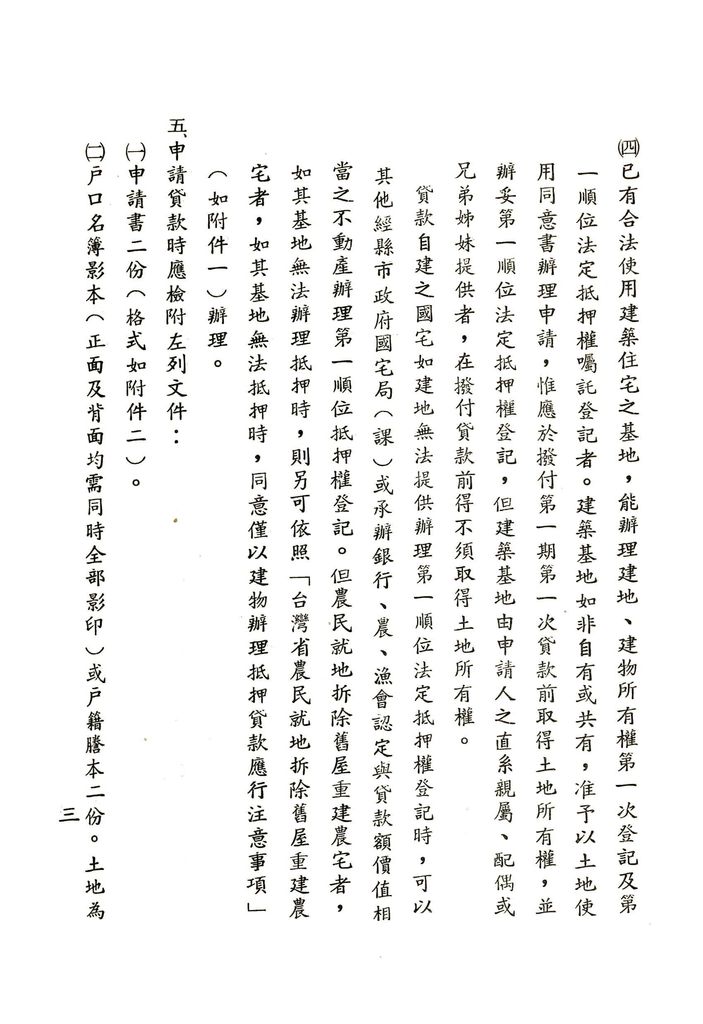 ㈣已有合法使用建築住宅之基地，能辦理建地、建物所有權第一次登記及第
一順位法定抵押權囑託登記者。建築基地如非自有或共有，准予以土地使
用同意書辦理申請，惟應於撥付第一期第一次貸款前取得土地所有權，並
辦妥第一順位法定抵押權登記，但建築基地由申請人之直系親屬、配偶或
兄弟姊妹提供者，在撥付貸款前得不須取得土地所有權。
貸款自建之國宅如建地無法提供辦理第一順位法定抵押權登記時，可以
其他經縣市政府國宅局（課）或承辦銀行、農、漁會認定與貸款額價值相
當之不動產辦理第一順位抵押權登記。但農民就地拆除舊屋重建農宅者，
如其基地無法辦理抵押時，則另可依照「台灣省農民就地拆除舊屋重建農
宅者，如其基地無法抵押時，同意僅以建物辦理抵押貸款應行注意事項」
（如附件一）辦理。
五、申請貸款時應檢附左列文件：
㈠申請書二份（格式如附件二）。
㈡戶口名簿影本（正面及背面均需同時全部影印）或戶籍謄本二份。土地為
三